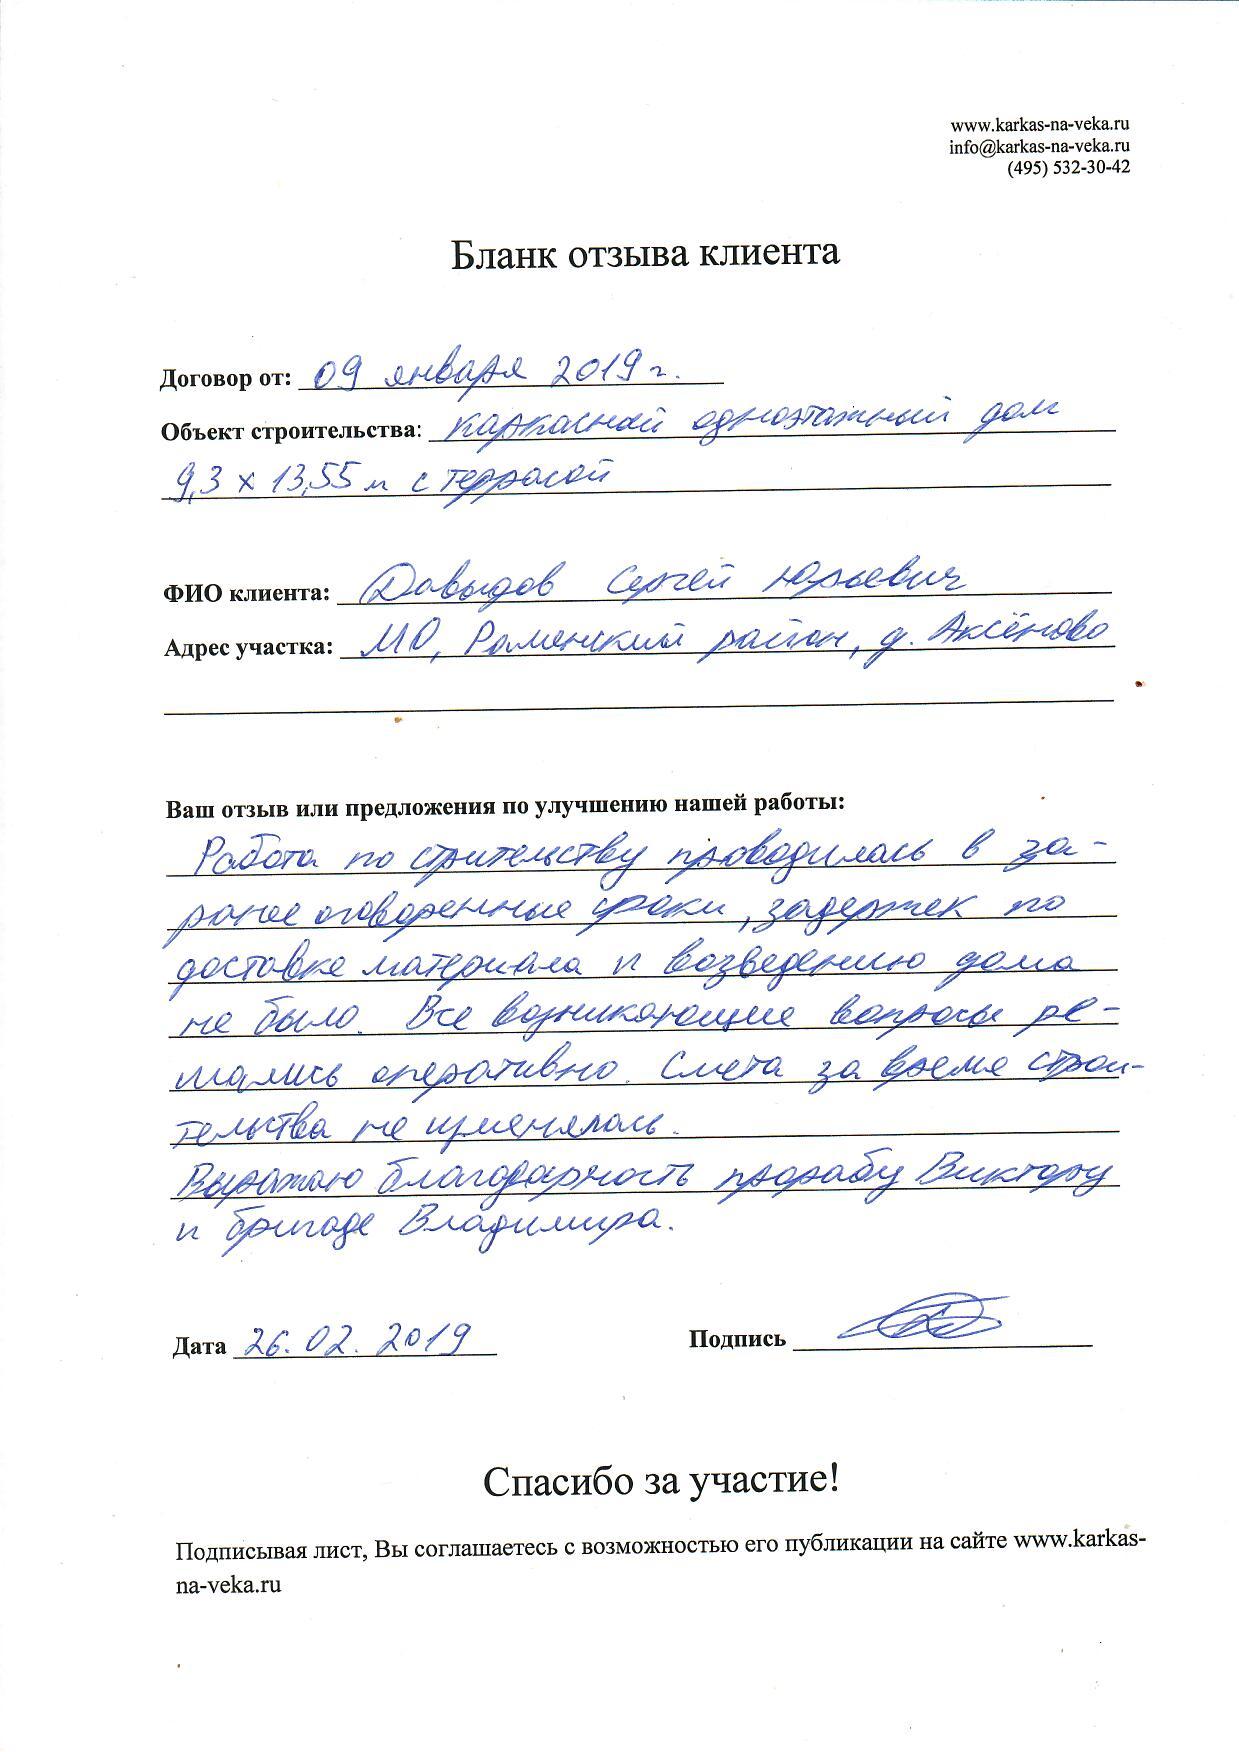 www.karkas-na-veka.ru
info@karkas-na-veka.ru
(495) 532-30-42
Бланк отзыва клиента
Договор от: 09 января 2019 г.
Объект строительства: каркасный одноэтажный дом
9,3 х 13,55 м с террасой
ФИО клиента: Давыдов Сергей Юрьевич
Адрес участка: МО, Раменский район, д. Аксёново
Ваш отзыв или предложения по улучшению нашей работы:
Работа по строительству проводилась в за-
ранее оговоренные сроки, задержек по
доставке материала и возведению дома
не было. Все возникающие вопросы ре-
шались оперативно. Смета за время строи-
тельства не изменялась.
Выражаю благодарность прорабу Виктору
и бригаде Владимира.
Дата 26.02.2019 Подпись
Спасибо за участие!
Подписывая лист, Вы соглашаетесь с возможностью его публикации на сайте www.karkas-
na-veka.ru